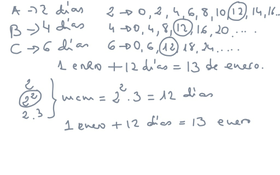 A → 2 días 2 → 0, 2, 4, 6, 8, 10, 12, 14, 16
B → 4 días 4 → 0, 4, 8, 12, 16, 20, ....
C → 6 días 6 → 0, 6, 12, 18, 24, ...
1 enero + 12 días = 13 de enero.
2
2² } mcm = 2² · 3 = 12 días
2 · 3
1 enero + 12 días = 13 enero